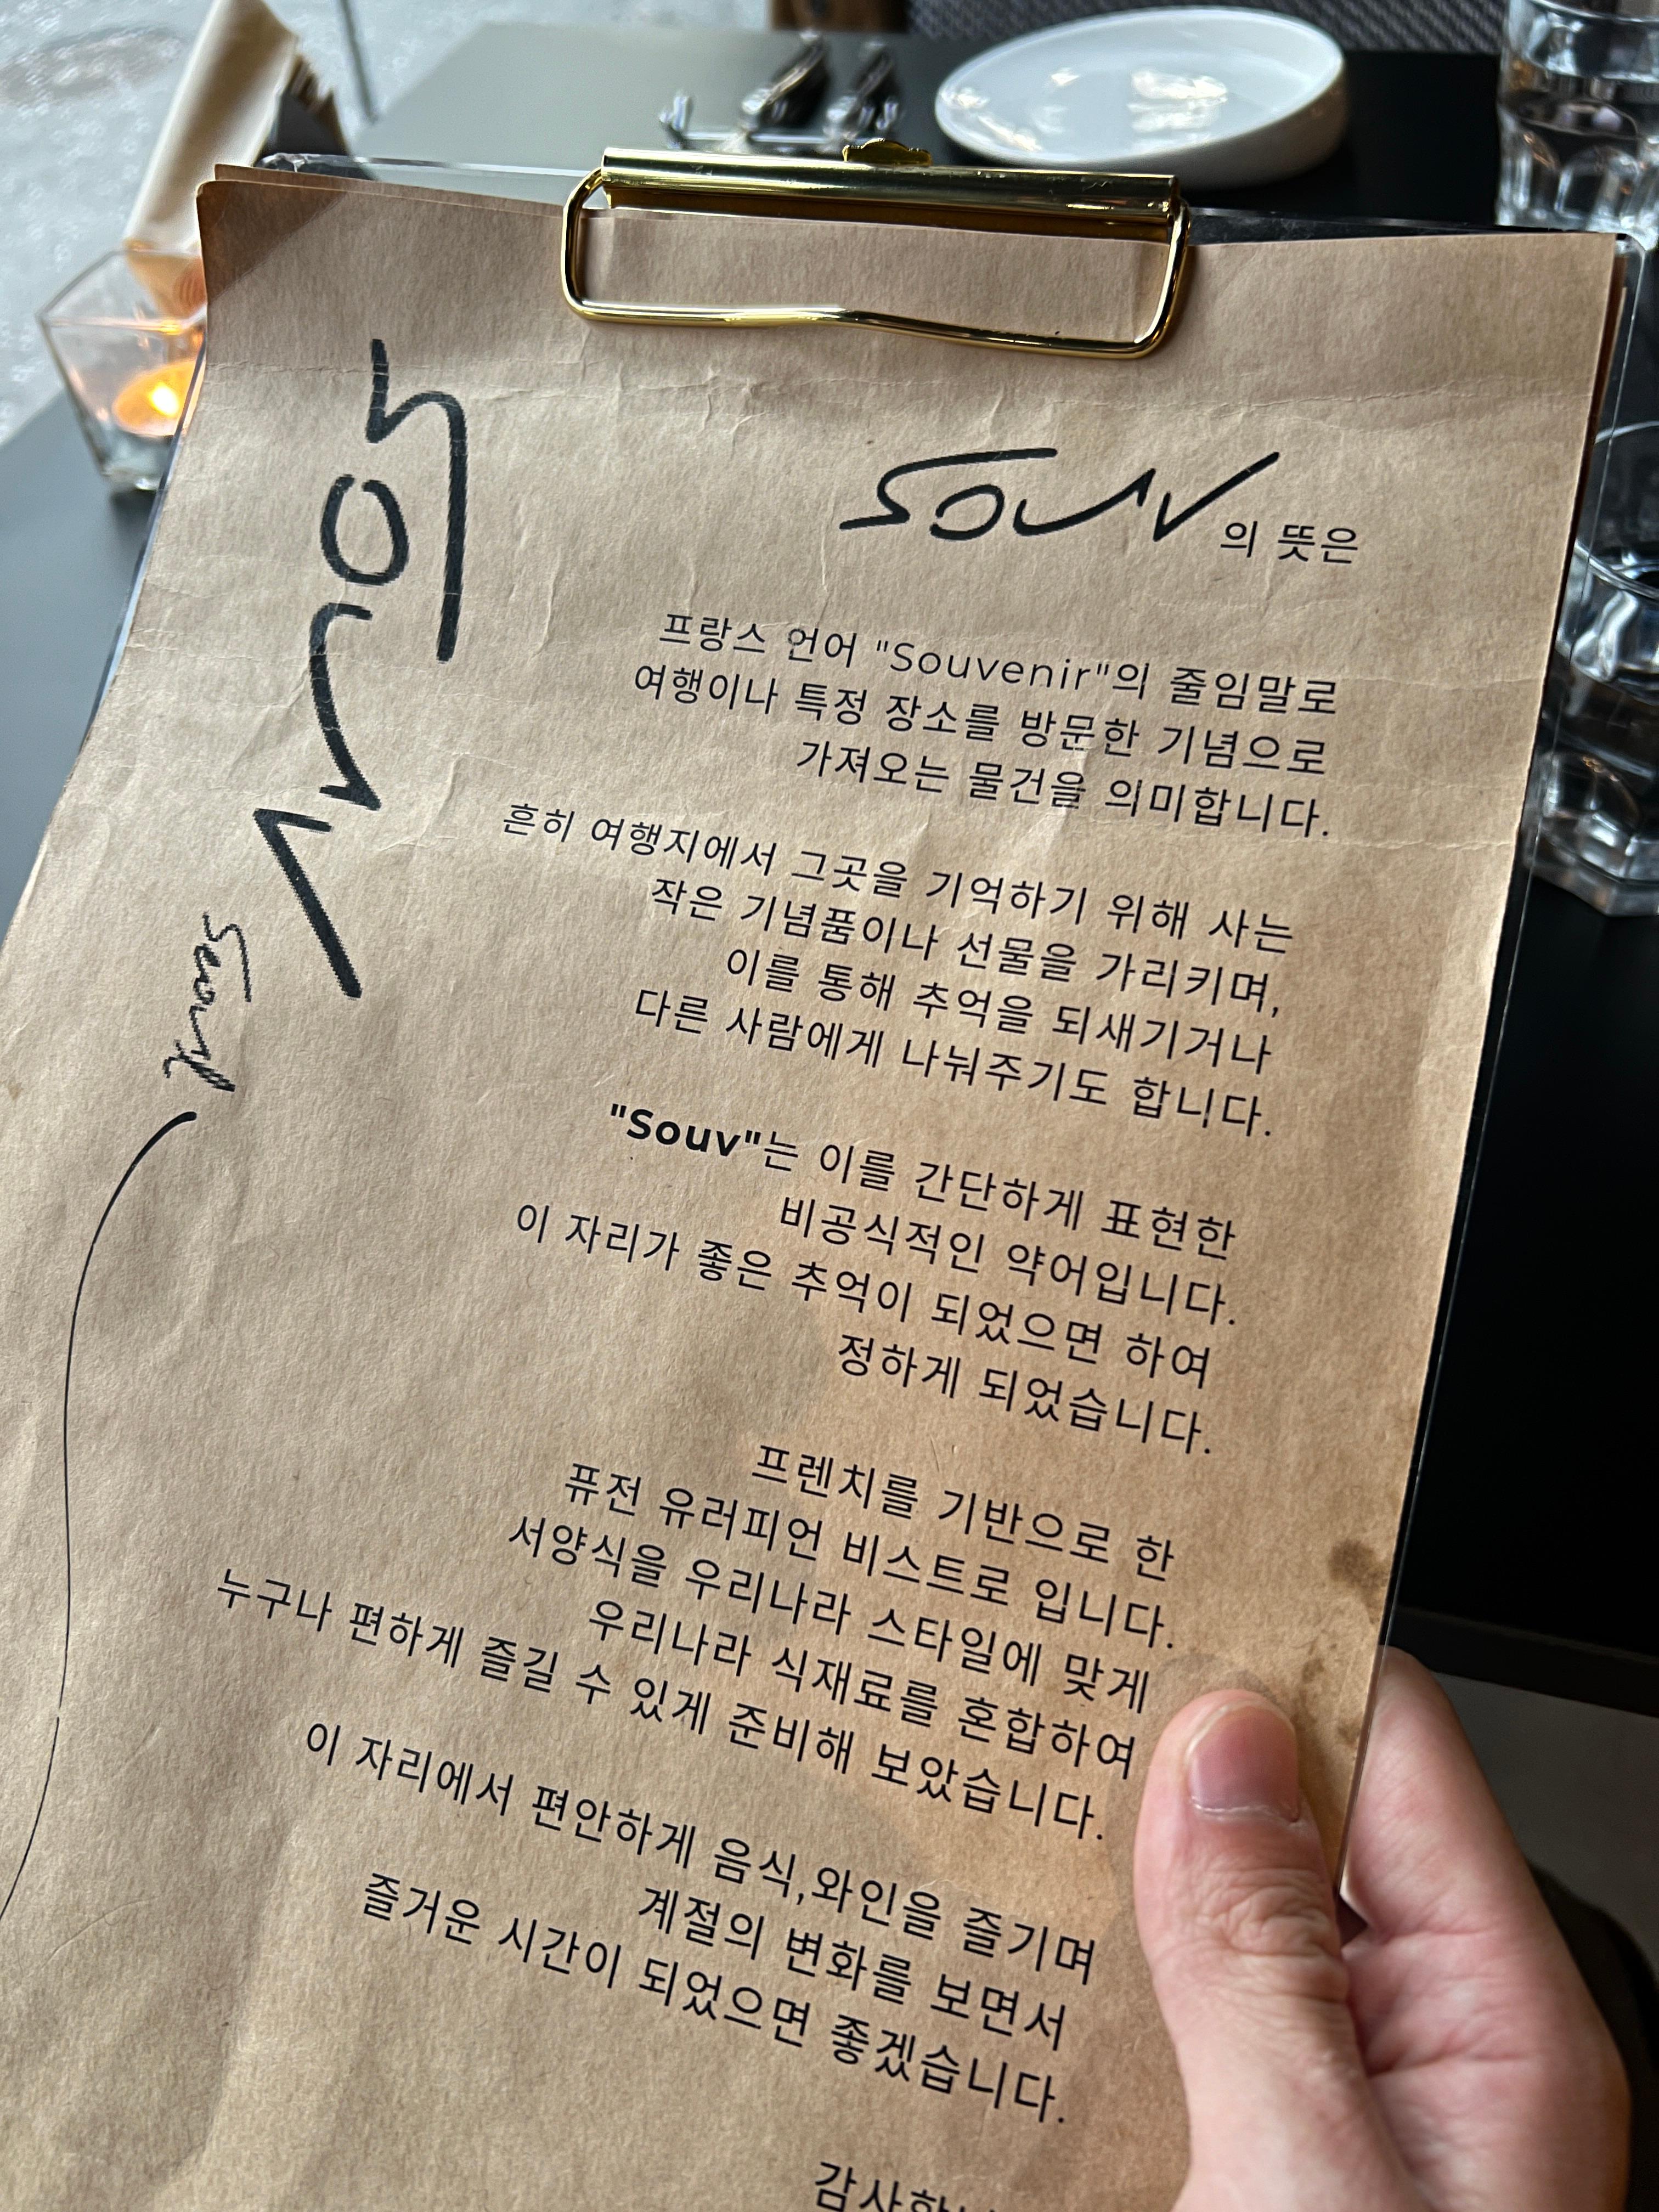 souv
seoul
souv의 뜻은
프랑스 언어 "Souvenir"의 줄임말로
여행이나 특정 장소를 방문한 기념으로
가져오는 물건을 의미합니다.
흔히 여행지에서 그곳을 기억하기 위해 사는
작은 기념품이나 선물을 가리키며,
이를 통해 추억을 되새기거나
다른 사람에게 나눠주기도 합니다.
"Souv"는 이를 간단하게 표현한
비공식적인 약어입니다.
이 자리가 좋은 추억이 되었으면 하여
정하게 되었습니다.
프렌치를 기반으로 한
퓨전 유러피언 비스트로 입니다.
서양식을 우리나라 스타일에 맞게
우리나라 식재료를 혼합하여
누구나 편하게 즐길 수 있게 준비해 보았습니다.
이 자리에서 편안하게 음식,와인을 즐기며
계절의 변화를 보면서
즐거운 시간이 되었으면 좋겠습니다.